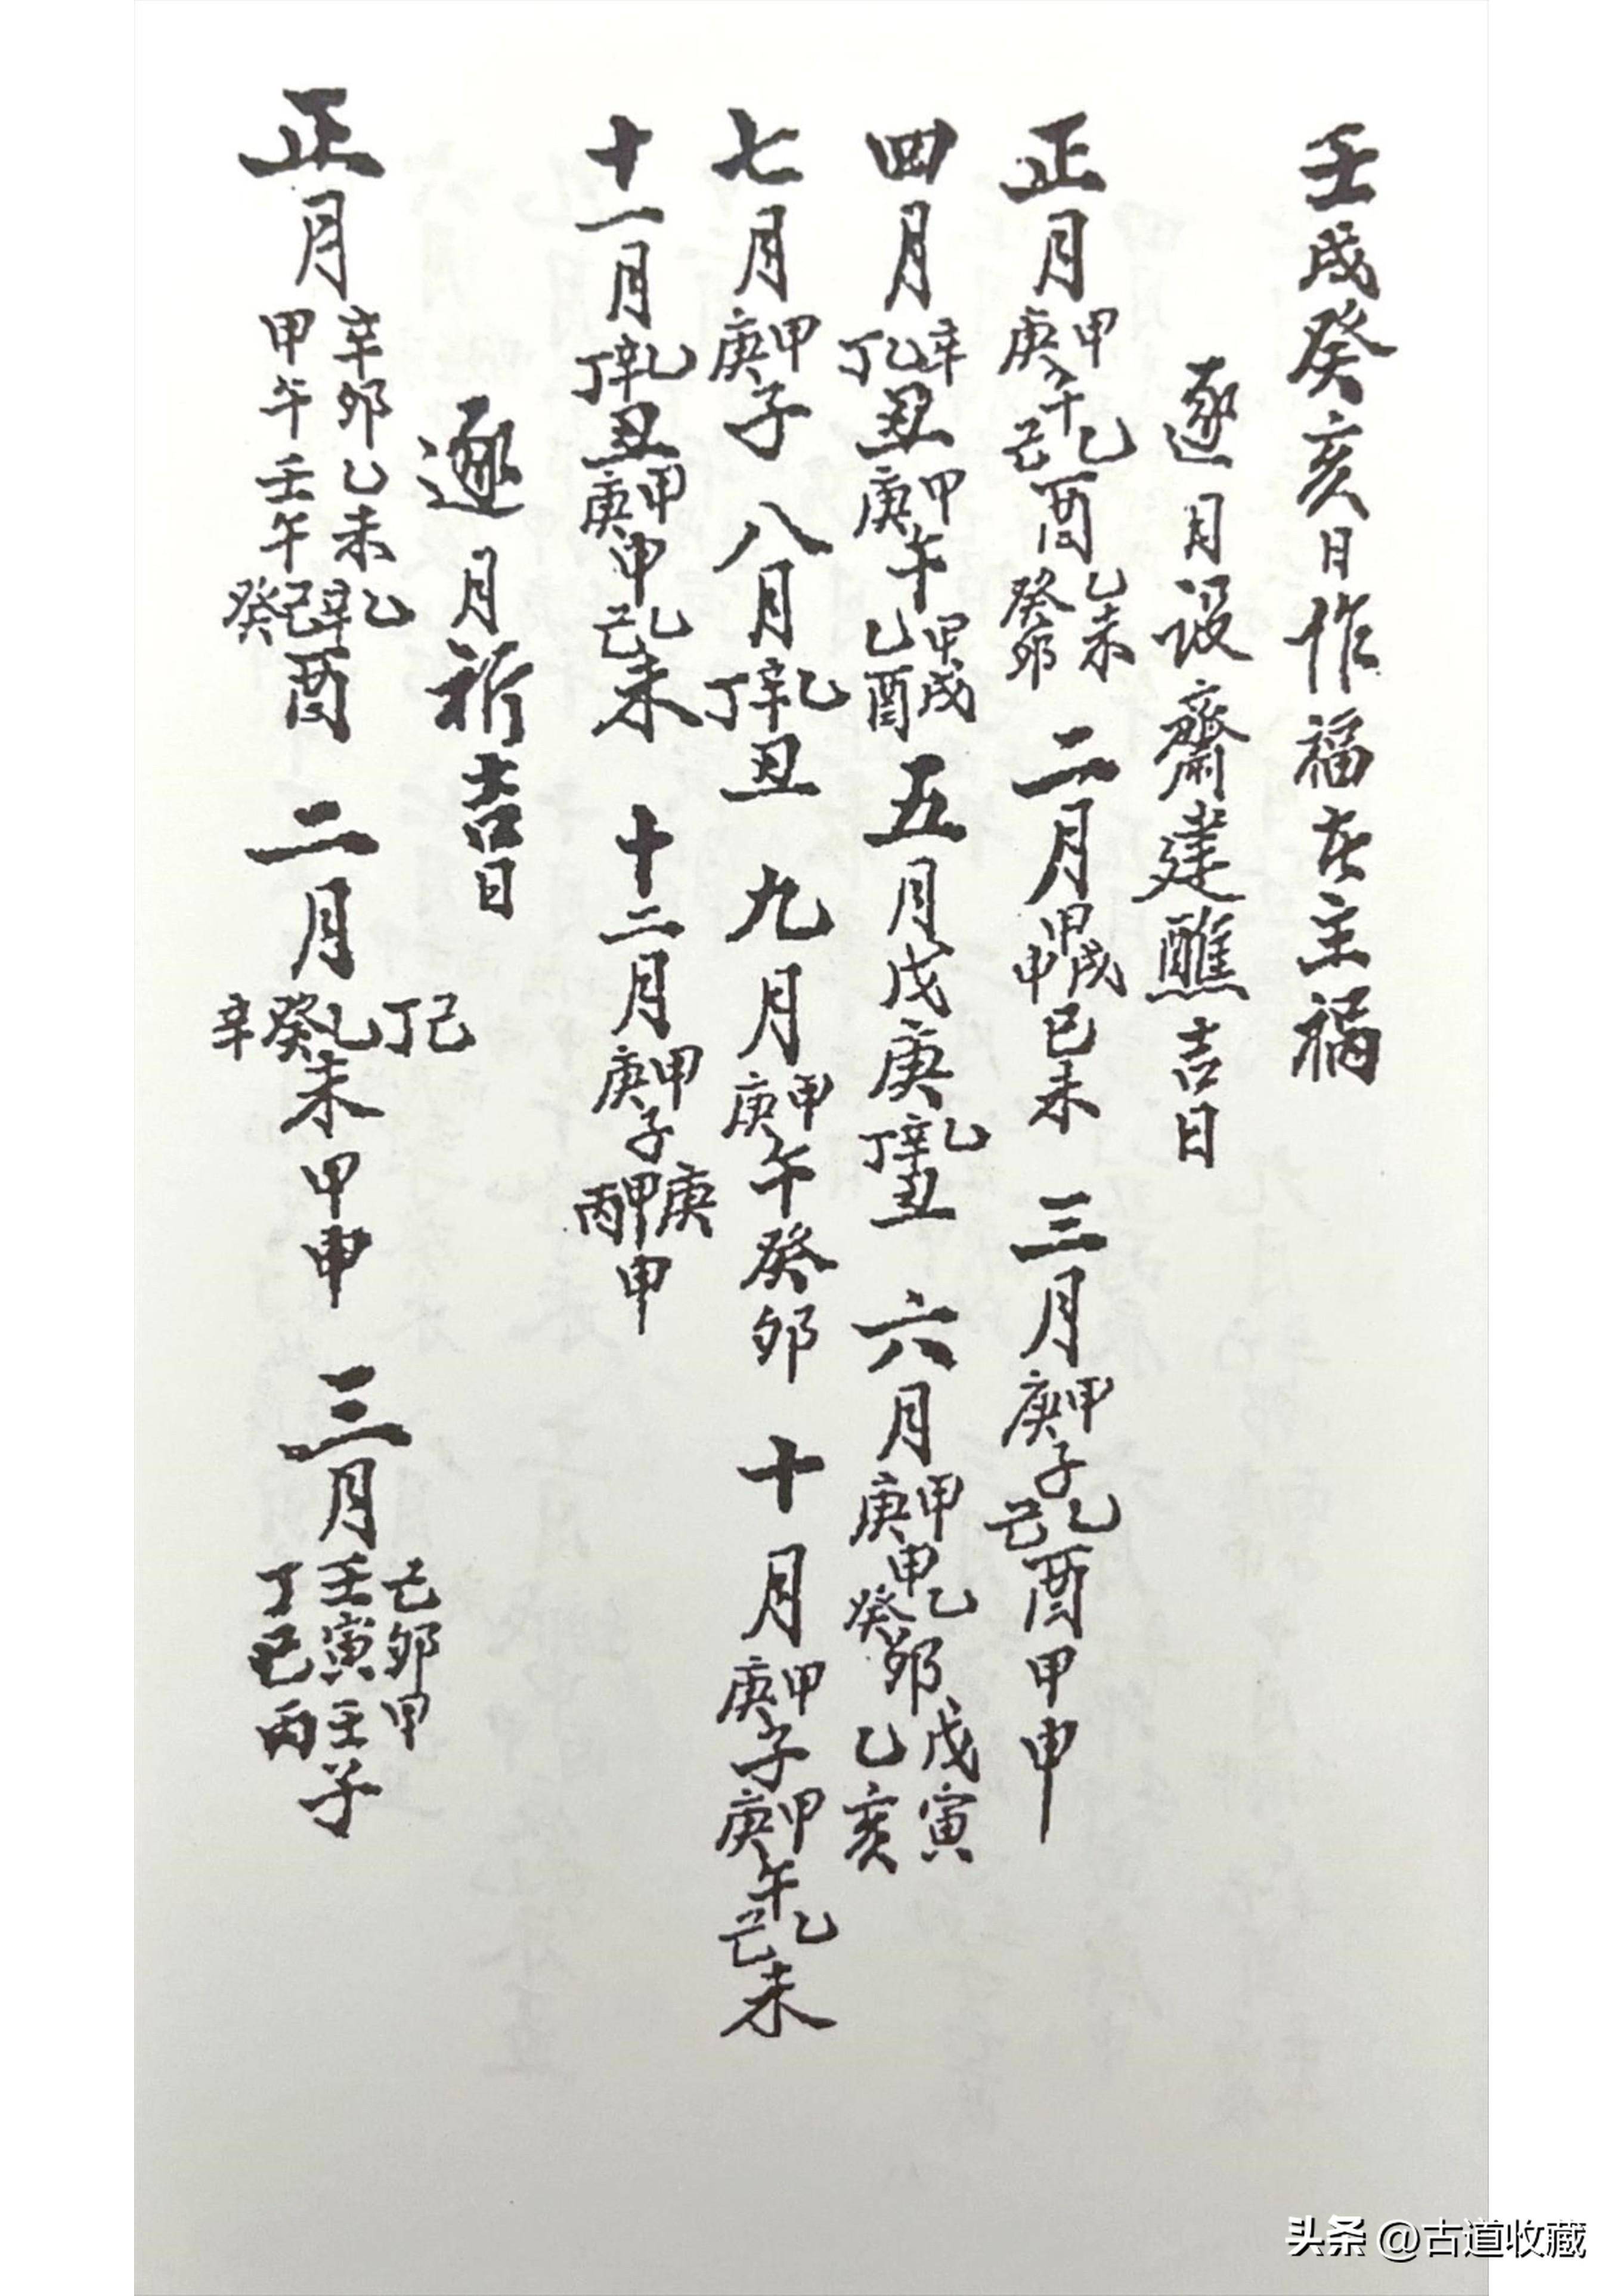 壬戌癸亥日作福喜主禍
逐月設齋建醮吉日
正月甲庚午乙己酉乙未癸卯 二月甲戌甲申己未 三月甲庚子乙己酉甲申
四月辛乙丁丑甲庚午甲戌乙酉 五月戊庚乙辛丁丑 六月甲庚申乙癸卯戊寅乙亥
七月甲庚子 八月乙辛丁丑 九月甲庚午癸卯 十月甲庚子甲庚午乙己未
十一月乙辛丁丑甲庚申乙己未 十二月甲庚子庚甲丙申
逐月祈吉日
正月辛卯乙未乙辛己癸酉甲午壬午 二月己丁乙癸辛未甲申 三月己卯甲壬寅壬子丁巳丙
头条 @古道收藏